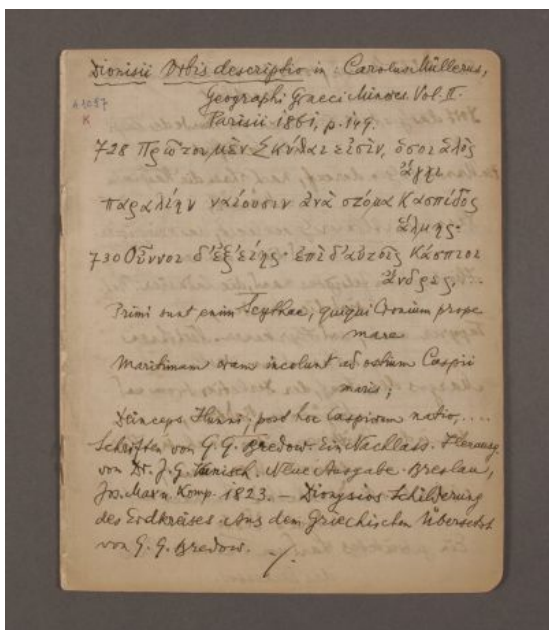 Dionisii Orbis descriptio in: Carolus Müllerus,
Geographi Graeci Minores. Vol. II.
Parisii 1861, p. 149.
K
728 Πρῶτοι μὲν Σκύθαι εἰσὶν, ὅσοι ἁλὸς
ἄγχι
παραλίην ναίουσιν ἀνὰ στόμα Κασπίδος
ἅλμης·
730 Οὖννοι δ' ἐξείης· ἐπὶ δ' αὐτοῖς Κάσπιοι
ἄνδρες,..
Primi sunt enim Scythae, quiqui Cronium prope
mare
maritimam oram incolunt ad ostium Caspii
maris;
Deinceps Hunni; post hoc Caspiorum natio, ....
Schriften von G. G. Bredow. Ein Nachlass. Herausg.
von Dr. J. G. Kunisch. Neue Ausgabe. Breslau,
Jos. Max u. Komp. 1823. – Dionysios Schilderung
des Erdkreises. Aus dem Griechischen Übersetzt
von G. G. Bredow. ./.